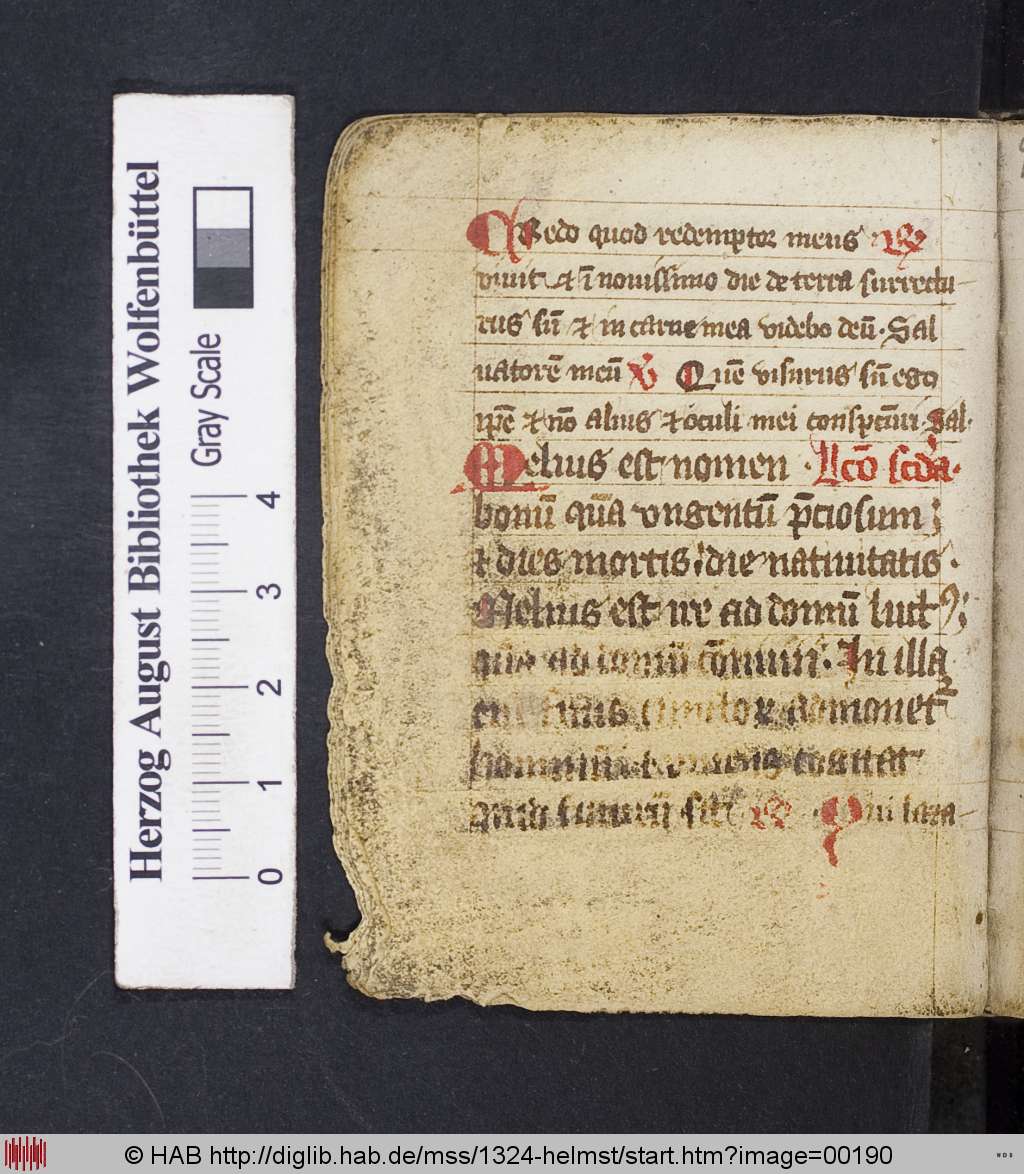 Herzog August Bibliothek Wolfenbüttel
Gray Scale
0 1 2 3 4
Credo quod redemptor meus R
viuit et ī nouissimo die de terra surrectu
rus sū et in carne mea videbo deū. Sal
uatorē meū V Quē visurus sū ego
ip̄e et nō alius et oculi mei conspcūri Sal.
Melius est nomen . Lcō scd̄a.
bonū qua̅ vngentū p̄ciosum
et dies mortis die natiuitatis .
Melius est ire ad domū luct9
quā ad domū cōuiuii. In illa
em̄ admonet̄
hominū cogitat
quid futurū sit R Qui laza
© HAB http://diglib.hab.de/mss/1324-helmst/start.htm?image=00190
WDB